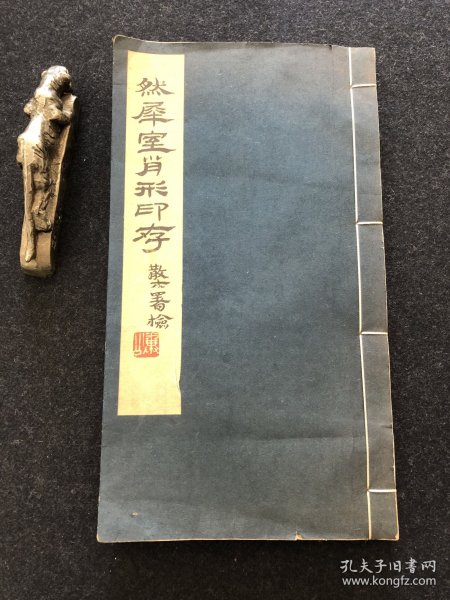 然犀室肖形印存
散木署檢
孔夫子旧书网
www.kongfz.com